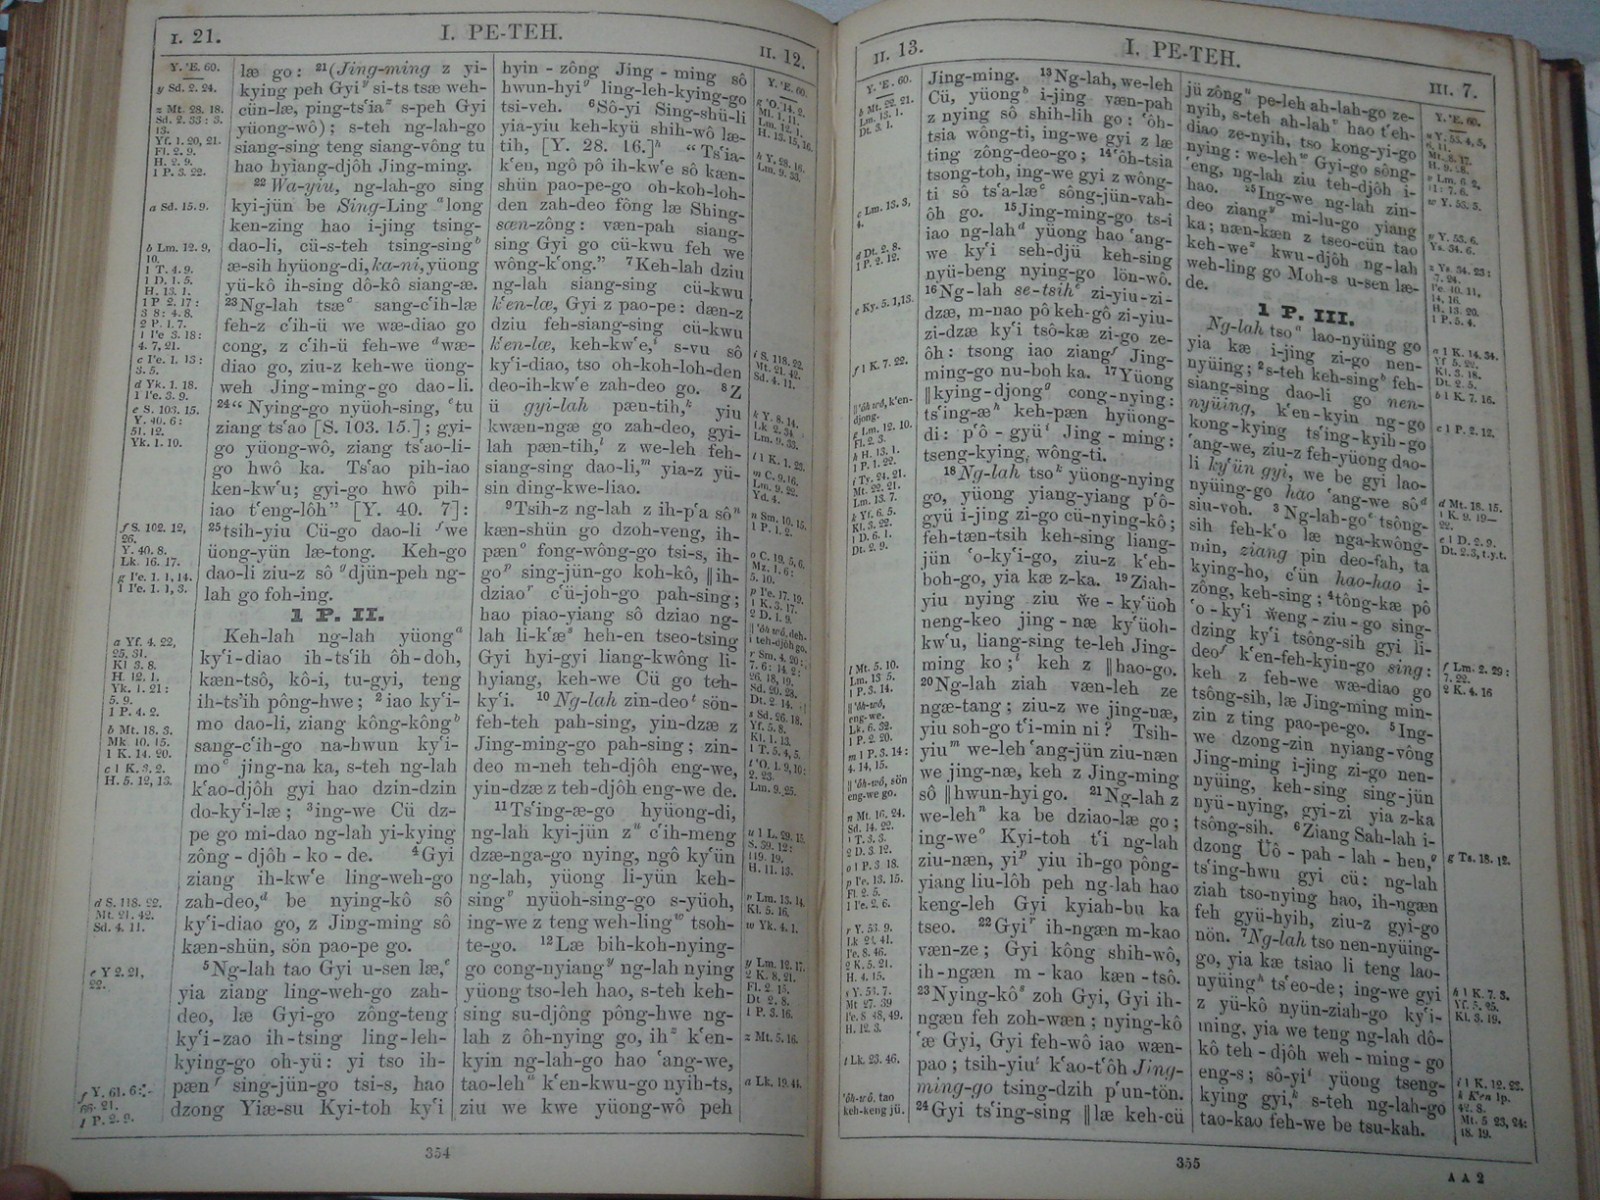 I. 21.
I. PE-TEH.
II. 12.
Y. 'E. 60.
y Sd. 2. 24.
z Mt. 28. 18.
Sd. 2. 33 : 3.
13.
Yf. 1. 20, 21.
Fl. 2. 9.
H. 2. 9.
1 P. 3. 22.
a Sd. 15. 9.
b Lm. 12. 9,
10.
1 T. 4. 9.
1 D. 1. 5.
H. 13. 1.
1 P 2. 17 :
3 8 : 4. 8.
2 P. 1. 7.
1 I'e 3. 18 :
4. 7, 21.
c I'e. 1. 13 :
3. 5.
d Yk. 1. 18.
1 I'e. 3. 9.
e S. 103. 15.
Y. 40. 6 :
51. 12.
Yk. 1. 10.
f S. 102. 12,
26.
Y. 40. 8.
Lk. 16. 17.
g I'e. 1. 1, 14.
1 I'e. 1. 1, 3.
a Yf. 4. 22,
25. 31.
Kl 3. 8.
H. 12. 1.
Yk. 1. 21 :
5. 9.
1 P. 4. 2.
b Mt. 18. 3.
Mk. 10. 15.
1 K. 14. 20.
c 1 K. 3. 2.
H. 5. 12, 13.
d S. 118. 22.
Mt. 21. 42.
Sd. 4. 11.
e Y 2. 21,
22.
f Y. 61. 6 :
66. 21.
1 P. 2. 9.
læ go : ²¹(Jing-ming z yi-
kying peh Gyiʸ si-ts tsæ weh-
cün-læ, ping-ts'iaᶻ s-peh Gyi
yüong-wô) ; s-teh ng-lah-go
siang-sing teng siang-vông tu
hao hyiang-djôh Jing-ming.
²² Wa-yiu, ng-lah-go sing
kyi-jün be Sing-Ling ᵃlong
ken-zing hao i-jing tsing-
dao-li, cü-s-teh tsing-singᵇ
æ-sih hyüong-di, ka-ni, yüong
yü-kô ih-sing dô-kô siang-æ.
²³Ng-lah tsæᶜ sang-c'ih-læ
feh-z c'ih-ü we wæ-diao go
cong, z c'ih-ü feh-we ᵈwæ-
diao go, ziu-z keh-we üong-
weh Jing-ming-go dao-li.
²⁴“ Nying-go nyüoh-sing, ᵉtu
ziang ts'ao [S. 103. 15.] ; gyi-
go yüong-wô, ziang ts'ao-li-
go hwô ka. Ts'ao pih-iao
ken-kw'u; gyi-go hwô pih-
iao t'eng-lôh” [Y. 40. 7] :
²⁵tsih-yiu Cü-go dao-li ᶠwe
üong-yün læ-tong. Keh-go
dao-li ziu-z sô ᵍdjün-peh ng-
lah go foh-ing.
1 P. II.
Keh-lah ng-lah yüongᵃ
ky'i-diao ih-ts'ih ôh-doh,
kæn-tsô, kô-i, tu-gyi, teng
ih-ts'ih pông-hwe ; ²iao ky'i-
mo dao-li, ziang kông-kôngᵇ
sang-c'ih-go na-hwun ky'i-
moᶜ jing-na ka, s-teh ng-lah
k'ao-djôh gyi hao dzin-dzin
do-ky'i-læ ; ³ing-we Cü dz-
pe go mi-dao ng-lah yi-kying
zông - djôh - ko - de. ⁴Gyi
ziang ih-kw'e ling-weh-go
zah-deo,ᵈ be nying-kô sô
ky'i-diao go, z Jing-ming sô
kæn-shün, sön pao-pe go.
⁵Ng-lah tao Gyi u-sen læ,ᵉ
yia ziang ling-weh-go zah-
deo, læ Gyi-go zông-teng
ky'i-zao ih-tsing ling-leh-
kying-go oh-yü : yi tso ih-
pænᶠ sing-jün-go tsi-s, hao
dzong Yiæ-su Kyi-toh ky'i
hyin - zông Jing - ming sô
hwun-hyiᵍ ling-leh-kying-go
tsi-veh. ⁶Sô-yi Sing-shü-li
yia-yiu keh-kyü shih-wô læ-
tih, [Y. 28. 16.]ʰ “Ts'ia-
k'en, ngô pô ih-kw'e sô kæn-
shün pao-pe-go oh-koh-loh-
den zah-deo fông læ Shing-
sœn-zông : væn-pah siang-
sing Gyi go cü-kwu feh we
wông-k'ong.” ⁷Keh-lah dziu
ng-lah siang-sing cü-kwu
k'en-læ, Gyi z pao-pe : dæn-z
dziu feh-siang-sing cü-kwu
k'en-læ, keh-kw'e,ⁱ s-vu sô
ky'i-diao, tso oh-koh-loh-den
deo-ih-kw'e zah-deo go. ⁸Z
ü gyi-lah pæn-tih,ᵏ yiu
kwæn-ngæ go zah-deo, gyi-
lah pæn-tih,ˡ z we-leh feh-
siang-sing dao-li,ᵐ yia-z yü-
sin ding-kwe-liao.
⁹Tsih-z ng-lah z ih-p'a sôⁿ
kæn-shün go dzoh-veng, ih-
pænᵒ fong-wông-go tsi-s, ih-
goᵖ sing-jün-go koh-kô, ‖ih-
dziaoʳ c'ü-joh-go pah-sing ;
hao piao-yiang sô dziao ng-
lah li-k'æˢ heh-en tseo-tsing
Gyi hyi-gyi liang-kwông li-
hyiang, keh-we Cü go teh-
ky'i. ¹⁰ Ng-lah zin-deoᵗ sön-
feh-teh pah-sing, yin-dzæ z
Jing-ming-go pah-sing ; zin-
deo m-neh teh-djôh eng-we,
yin-dzæ z teh-djôh eng-we de.
¹¹Ts'ing-æ-go hyüong-di,
ng-lah kyi-jün zᵘ c'ih-meng
dzæ-nga-go nying, ngô ky'ün
ng-lah, yüong li-yün keh-
singᵛ nyüoh-sing-go s-yüoh,
ing-we z teng weh-lingʷ tsoh-
te-go. ¹²Læ bih-koh-nying-
go cong-nyiangʸ ng-lah nying
yüong tso-leh hao, s-teh keh-
sing su-djông pông-hwe ng-
lah z ôh-nying go, ihᶻ k'en-
kyin ng-lah-go hao 'ang-we,
tao-lehᵃ k'en-kwu-go nyih-ts,
ziu we kwe yüong-wô peh
Y. 'E. 60.
g 'O. 14. 2.
Ml. 1. 11.
Lm. 12. 1.
H. 13. 15, 16.
h Y. 28. 16.
Lm. 9. 33.
i S. 118. 22.
Mt. 21. 42.
Sd. 4. 11.
k Y. 8. 14.
Lk. 2. 34.
Lm. 9. 33.
l 1 K. 1. 23.
m C. 9. 16.
Lm. 9. 22.
Yd. 4.
n Sm. 10. 15.
1 P. 1. 2.
o C. 19. 5, 6.
Mz. 1. 6 :
5. 10.
p I'e. 17. 19.
1 K. 3. 17.
2 D. 1. 9.
‖ 'ôh-wô, deh-
i teh-djôh go.
r Sm. 4. 20 :
7. 6 : 14. 2 :
26. 18, 19.
Sd. 20. 28.
Dt. 2. 14.
s Sd. 26. 18.
Yf. 5. 8.
Kl. 1. 13.
1 T. 5. 4, 5.
t 'O. 1. 9, 10 :
2. 23.
Lm. 9. 25.
u 1 L. 29. 15.
S. 39. 12 :
119. 19.
H. 11. 13.
v Lm. 13. 14.
Kl. 5. 16.
w Yk. 4. 1.
y Lm. 12. 17.
2 K. 8. 21.
Fl. 2. 15.
Dt. 2. 8.
1 P. 3. 16.
z Mt. 5. 16.
a Lk. 19. 44.
354
II. 13.
I. PE-TEH.
III. 7.
Y. 'E. 60.
b Mt. 22. 21.
Lm. 13. 1.
Dt. 3. 1.
c Lm. 13. 3,
4.
d Dt. 2. 8.
1 P. 2. 12.
e Ky. 5. 1, 13.
f 1 K. 7. 22.
‖ 'ôh-wô, k'en-
djong.
g Lm. 12. 10.
Fl. 2. 3.
h H. 13. 1.
1 P. 1. 22.
i Ts. 24. 21.
Mt. 22. 21.
Lm. 13. 7.
k Yf. 6. 5.
Kl. 3. 22.
1 D. 6. 1.
Dt. 2. 9.
l Mt. 5. 10.
Lm. 13 5.
1 P. 3. 14.
‖ 'ôh-wô,
eng-we.
Lk. 6. 32.
1 P. 2. 20.
m 1 P. 3. 14 :
4. 14, 15.
‖ 'ôh-wô, sön
eng-we go.
n Mt. 16. 24.
Sd. 14. 22.
1 T. 3. 3.
2 D. 3. 12.
o 1 P. 3 18.
p I'e. 13. 15.
Fl. 2. 5.
1 I'e. 2. 6.
r Y. 53. 9.
Lk 23. 41.
I'e. 8. 46.
2 K. 5. 21.
H. 4. 15.
s Y. 53. 7.
Mt 27. 39
I'e. 8 48, 49.
H. 12. 3.
t Lk. 23. 46.
‖ 'ôh-wô. tao
keh-keng jü.
Jing-ming. ¹³Ng-lah, we-leh
Cü, yüongᵇ i-jing væn-pah
z nying sô shih-lih go : 'ôh-
tsia wông-ti, ing-we gyi z læ
ting zông-deo-go ; ¹⁴'ôh-tsia
tsong-toh, ing-we gyi z wông-
ti sô ts'a-læᶜ sông-jün-vah-
ôh go. ¹⁵Jing-ming-go ts-i
iao ng-lahᵈ yüong hao 'ang-
we ky'i seh-djü keh-sing
nyü-beng nying-go lön-wô.
¹⁶Ng-lah se-tsihᵉ zi-yiu-zi-
dzæ, m-nao pô keh-gô zi-yiu-
zi-dzæ ky'i tsô-kæ zi-go ze-
ôh : tsong iao ziangᶠ Jing-
ming-go nu-boh ka. ¹⁷Yüong
‖kying-djongᵍ cong-nying :
ts'ing-æʰ keh-pæn hyüong-
di : p'ô - gyüⁱ Jing - ming :
tseng-kying, wông-ti.
¹⁸Ng-lah tsoᵏ yüong-nying
go, yüong yiang-yiang p'ô-
gyü i-jing zi-go cü-nying-kô ;
feh-tæn-tsih keh-sing liang-
jün 'o-ky'i-go, ziu-z k'eh-
boh-go, yia kæ z-ka. ¹⁹Ziah-
yiu nying ziu we - ky'üoh
neng-keo jing - næ ky'üoh-
kw'u, liang-sing te-leh Jing-
ming ko ;ˡ keh z ‖hao-go.
²⁰Ng-lah ziah væn-leh ze
ngæ-tang ; ziu-z we jing-næ,
yiu soh-go t'i-min ni ? Tsih-
yiuᵐ we-leh 'ang-jün ziu-næn
we jing-næ, keh z Jing-ming
sô ‖hwun-hyi go. ²¹Ng-lah z
we-lehⁿ ka be dziao-læ go ;
ing-weᵒ Kyi-toh t'i ng-lah
ziu-næn, yiᵖ yiu ih-go pông-
yiang liu-lôh peh ng-lah hao
keng-leh Gyi kyiah-bu ka
tseo. ²²Gyiʳ ih-ngæn m-kao
væn-ze ; Gyi kông shih-wô,
ih-ngæn m - kao kæn -tsô.
²³Nying-kôˢ zoh Gyi, Gyi ih-
ngæn feh zoh-wæn ; nying-kô
'æ Gyi, Gyi feh-wô iao wæn-
pao ; tsih-yiuᵗ k'ao-t'ôh Jing-
ming-go tsing-dzih p'un-tön.
²⁴Gyi ts'ing-sing ‖læ keh-cü
jü zôngᵘ pe-leh ah-lah-go ze-
nyih, s-teh ah-lahᵛ hao t'eh-
diao ze-nyih, tso kong-yi-go
nying : we-lehʷ Gyi-go sông-
'eng, ng-lah ziu teh-djôh i-
hao. ²⁵Ing-we ng-lah zin-
deo ziangʸ mi-lu-go yiang
ka ; næn-kæn z tseo-cün tao
keh-weᶻ kwu-djôh ng-lah
weh-ling go Moh-s u-sen læ-
de.
1 P. III.
Ng-lah tsoᵃ lao-nyüing go
yia kæ i-jing zi-go nen-
nyüing ; ²s-teh keh-singᵇ feh-
siang-sing dao-li go nen-
nyüing, k'en-kyin ng-go
kong-kying ts'ing-kyih-go
'ang-we, ziu-z feh-yüong dao-
li ky'ün gyi, we be gyi lao-
nyüing-go hao 'ang-we sôᵈ
siu-voh. ³ Ng-lah-goᵉ tsông-
sih feh-k'o læ nga-kwông-
min, ziang pin deo-fah, ta
kying-ho, c'ün hao-hao i-
zông, keh-sing ; ⁴tông-kæ pô
'o - ky'i weng - ziu - go sing-
dzing ky'i tsông-sih gyi li-
deoᶠ k'en-feh-kyin-go sing :
keh z feh-we wæ-diao go
tsông-sih, læ Jing-ming min-
zin z ting pao-pe-go. ⁵Ing-
we dzong-zin nyiang-vông
Jing-ming i-jing zi-go nen-
nyüing, keh-sing sing-jün
nyü-nying, gyi-zi yia z-ka
tsông-sih. ⁶Ziang Sah-lah i-
dzong Üô - pah - lah - hen,ᵍ
ts'ing-hwu gyi cü : ng-lah
ziah tso-nying hao, ih-ngæn
feh gyü-hyih, ziu-z gyi-go
nön. ⁷Ng-lah tso nen-nyüing-
go, yia kæ tsiao li teng lao-
nyüingʰ ts'eo-de ; ing-we gyi
z yü-kô nyün-ziah-go ky'i-
ming, yia we teng ng-lah dô-
kô teh - djôh weh - ming - go
eng-s ; sô-yiⁱ yüong tseng-
kying gyi,ᵏ s-teh ng-lah-go
tao-kao feh-we be tsu-kah.
Y. 'E. 60.
u Y. 53. 4, 5,
6. 11.
Mt. 8. 17.
H. 9. 28.
v Lm. 6. 2,
11 : 7. 6.
w Y. 53. 5.
y Y. 53. 6.
Ys. 34. 6.
z Ys. 34. 23 :
7. 24.
I'e. 10. 11,
14. 16.
H. 13. 20.
1 P. 5. 4.
a 1 K. 14. 34.
Yf 5. 22.
Kl. 3. 18.
Dt. 2. 5.
b 1 K. 7. 16.
c 1 P. 2. 12.
d Mt. 18. 15.
1 K. 9. 19—
22.
e 1 D. 2. 9.
Dt. 2. 3, t.y.t.
f Lm. 2. 29 :
7. 22.
2 K. 4. 16
g Ts. 18. 12.
h 1 K. 7. 3.
Yf. 5. 25.
Kl. 3. 19.
i 1 K. 12. 23.
k K'en 1p.
42. 8.
Mt. 5 23, 24 :
18. 19.
355
A A 2